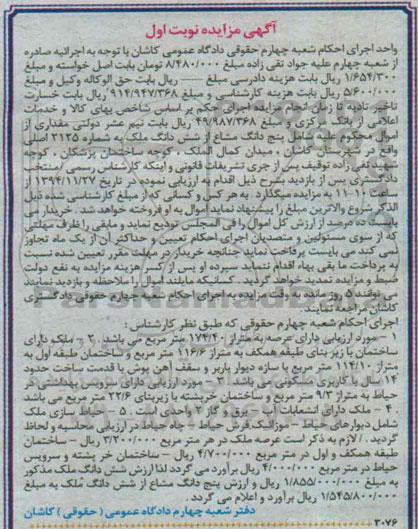 آگهی مزایده نوبت اول
واحد اجرای احکام شعبه چهارم حقوقی دادگاه عمومی کاشان با توجه به اجرائیه صادره
از شعبه چهارم علیه جواد تقی زاده مبلغ ۸/۴۸۰/۰۰۰ تومان بابت اصل خواسته و مبلغ
۱/۶۵۴/۳۰۰ ریال بابت هزینه دادرسی مبلغ —— ریال بابت حق الوکاله وکیل و مبلغ
۵/۶۰۰/۰۰۰ ریال بابت هزینه کارشناسی و مبلغ ۹۱۴/۹۴۷/۳۶۸ ریال بابت خسارت
تاخیر تادیه تا زمان انجام مزایده اجرای حکم بر اساس شاخص بهای کالا و خدمات
اعلامی از بانک مرکزی و مبلغ ۴۹/۹۸۷/۳۶۸ ریال بابت نیم عشر دولتی مقداری از
اموال محکوم علیه شامل پنج دانگ مشاع از شش دانگ ملک به شماره ۳۱۳۵ اصلی
واقع در بخش کاشان ، میدان کمال الملک ، کوچه ساختمان پزشکان ، کوچه
شهید تقی زاده توقیف پس از جری تشریفات قانونی و اینکه کارشناس رسمی منتخب
دادگستری پس از بازدید بشرح ذیل اقدام به ارزیابی نموده در تاریخ ۱۳۹۴/۱۱/۲۷
ساعت ۱۰-۱۱ به مزایده میگذارد . به هر کس و کسانی که از مبلغ کارشناسی شده ذیل
الذکر شروع والاترین مبلغ را پیشنهاد نماید اموال به او فروخته خواهد شد . خریدار می
بایست ده درصد از ارزش کل اموال را فی المجلس تودیع نماید و مابقی را ظرف مهلتی
که از سوی مسئولین و متصدیان اجرای احکام تعیین و حداکثر آن از یک ماه تجاوز
نمی کند می بایست پرداخت نماید چنانچه خریدار در مهلت مقرر تعیین شده نسبت
به پرداخت ما بقی بهاء اقدام ننماید سپرده او پس از کسر هزینه مزایده به نفع دولت
ضبط و مزایده تمدید خواهد گردید . کسانیکه مایلند اموال را ملاحظه و بازدید نمایند
می توانند ۵ روز مانده به وقت مزایده به اجرای احکام شعبه چهارم حقوقی دادگستری
کاشان مراجعه نمایند.
اجرای احکام شعبه چهارم حقوقی که طبق نظر کارشناس :
۱ – مورد ارزیابی دارای عرصه به متراژ ۱۷۴/۴۰ متر مربع می باشد . ۲ – ملک دارای
ساختمان با زیر بنای طبقه همکف به متراژ ۱۱۶/۶ متر مربع و ساختمان طبقه اول به
متراژ ۱۱۴/۱۰ متر مربع با سازه دیوار باربر و سقف آهن پوش با قدمت ساخت حدود
۱۴ سال با کاربری مسکونی می باشد . ۳ – مورد ارزیابی دارای سرویس بهداشتی در
حیاط به متراژ ۹/۳ متر مربع و ساختمان خرپشته با زیربنای ۲۲/۶ متر مربع می باشد
. ۴ – ملک دارای انشعابات آب – برق و گاز ۲ واحدی است . ۵ – حیاط سازی ملک
شامل دیوارهای حیاط – موزائیک فرش حیاط – چاه حیاط در ارزیابی محاسبه و لحاظ
گردید . / لازم به ذکر است عرصه ملک در هر متر مربع ۳/۲۰۰/۰۰۰ ریال – ساختمان
طبقه همکف و اول در متر مربع ۴/۷۰۰/۰۰۰ ریال – ساختمان خر پشته و سرویس
حیاط در متر مربع ۴/۰۰۰/۰۰۰ ریال برآورد می گردد لذا ارزش شش دانگ ملک مذکور
به مبلغ ۱/۸۵۵/۰۰۰/۰۰۰ ریال و ارزش پنج دانگ مشاع از شش دانگ ملک به مبلغ
۱/۵۴۵/۸۰۰/۰۰۰ ریال برآورد و اعلام می گردد .
دفتر شعبه چهارم دادگاه عمومی ( حقوقی ) کاشان
۳۰۷۶